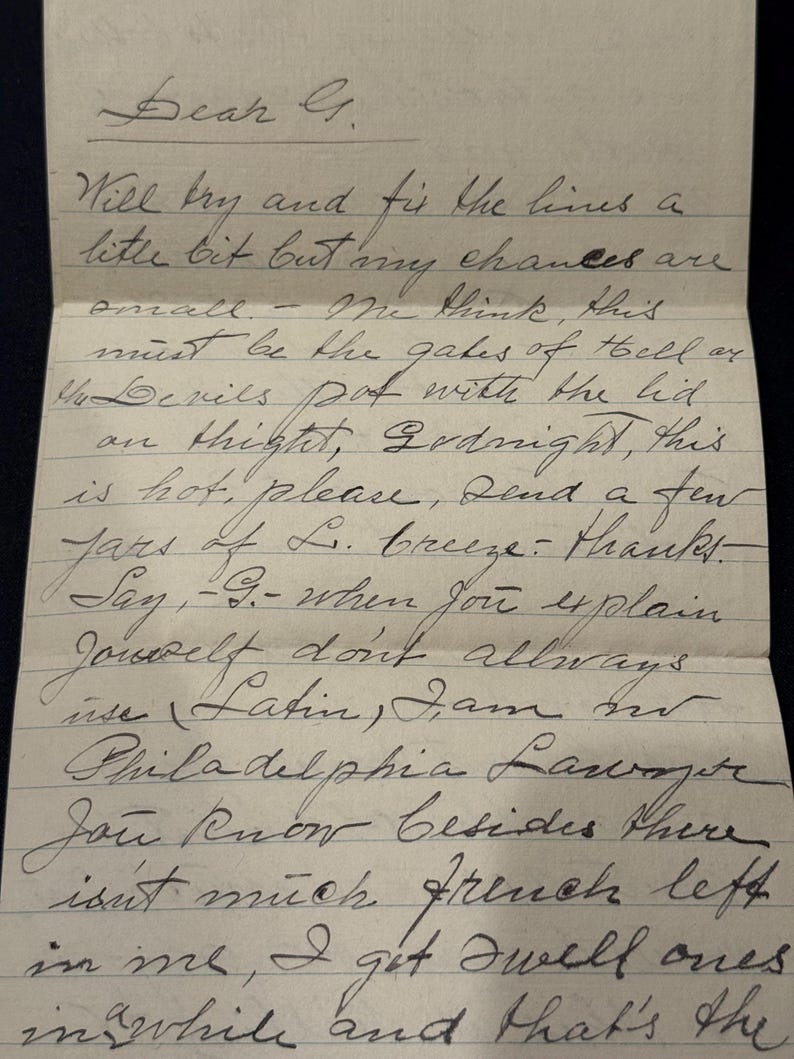 Dear G.
Will try and fix the lines a
little bit but my chances are
small. - Me think, this
must be the gates of Hell or
the Devils pot with the lid
on thight, Godnight, this
is hot, please, send a few
jars of L. breeze - thanks. -
Say, - G. - when joū explain
Jouself dońt allways
ūse (Latin) I, am no
Philadelphia Lawyer
Joū Know besides there
isńt mūch french left
in me, I got swell ones
in a while and that's the